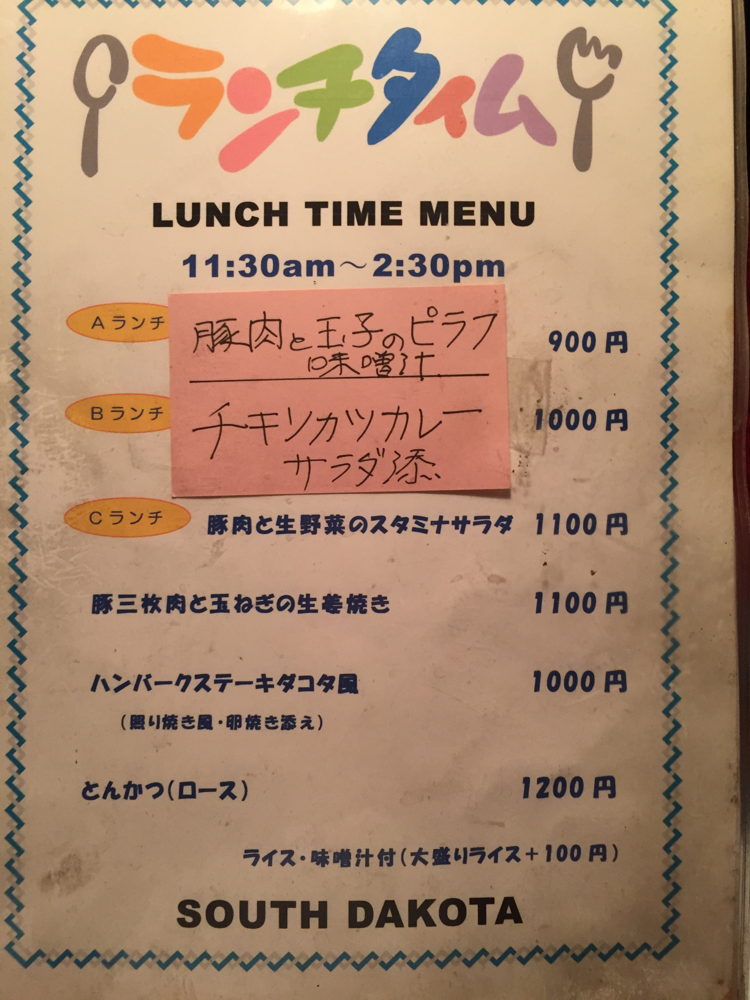 ランチタイム
LUNCH TIME MENU
11:30am～2:30pm
Aランチ 豚肉と玉子のピラフ 900円
味噌汁
Bランチ チキンカツカレー 1000円
サラダ添
Cランチ 豚肉と生野菜のスタミナサラダ 1100円
豚三枚肉と玉ねぎの生姜焼き 1100円
ハンバークステーキダコタ風 1000円
(照り焼き風・卵焼き添え)
とんかつ(ロース) 1200円
ライス・味噌汁付(大盛りライス+100円)
SOUTH DAKOTA